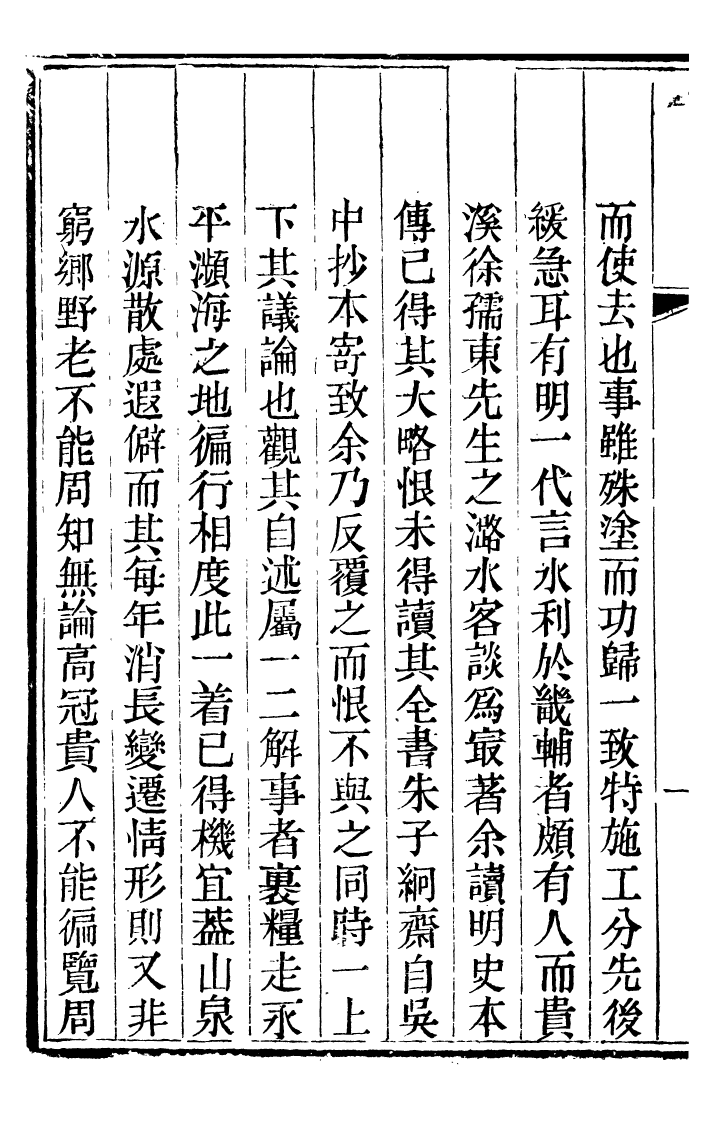 而使去也事雖殊塗而功歸一致特施工分先後
緩急耳有明一代言水利於畿輔者頗有人而貴
溪徐孺東先生之潞水客談爲㝡著余讀明史本
傳已得其大略恨未得讀其全書朱子絅齋自吳
中抄本寄致余乃反覆之而恨不與之同時一上
下其議論也觀其自述屬一二解事者裹糧走永
平瀕海之地徧行相度此一着已得機宜葢山泉
水源散處遐僻而其每年消長變遷情形則又非
窮鄉野老不能周知無論高冠貴人不能徧覽周
一